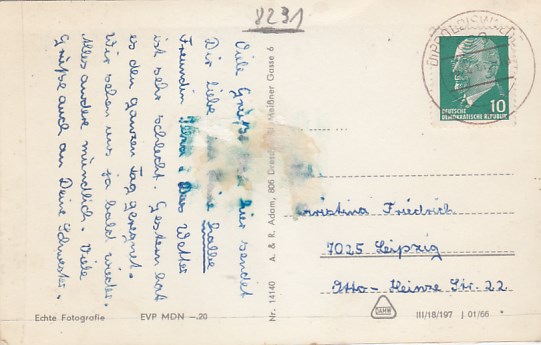 8231
Viele Grüße von hier sendet
Dir liebe
Freundin Ilse. Das Wetter
ist sehr schlecht. Gestern hat
es den ganzen Tag geregnet.
Wir sehen uns ja bald wieder.
Alles andere mündlich. Viele
Grüße auch an Deine Schwester.
Echte Fotografie EVP MDN —.20
Nr. 14140 A. & R. Adam, 806 Dresden, Meißner Gasse 6
10
DEUTSCHE
DEMOKRATISCHE REPUBLIK
Christina Friedrich
7025 Leipzig
Otto-Heinze Str. 22
III/18/197 J 01/66